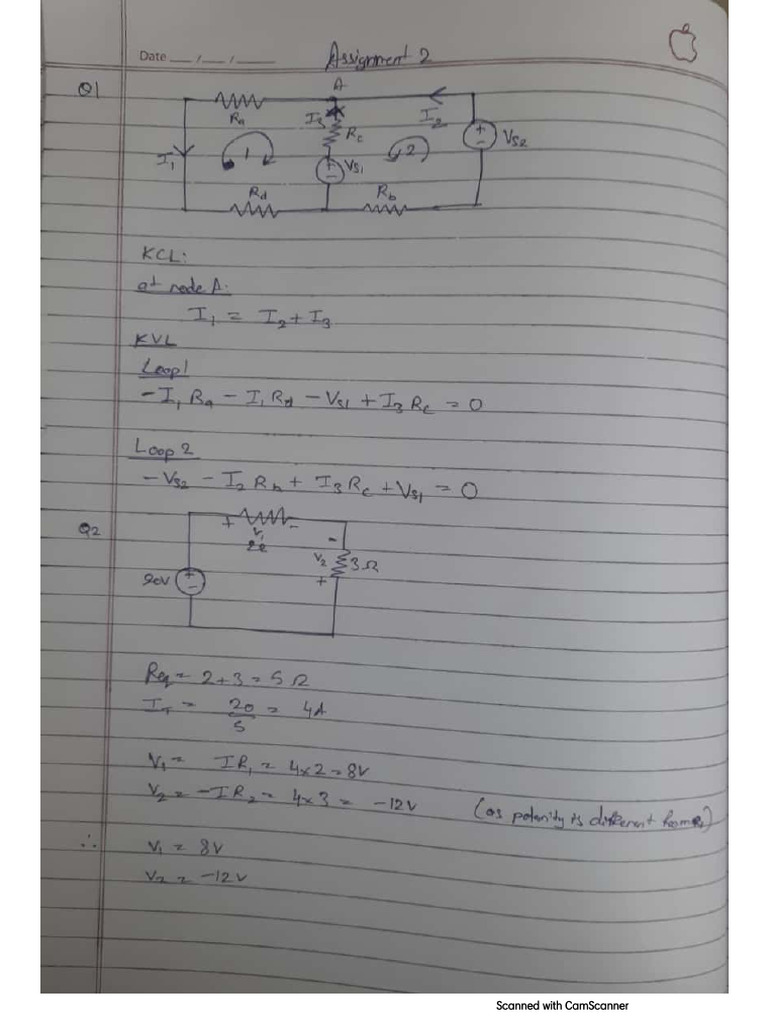 Date ___/___/___
Assignment 2
Q1
A
Ra
I3
Rc
I2
VS2
I1
1
2
VS1
Rd
Rb
KCL:
at node A:
I1 = I2 + I3
KVL
Loop 1
-I1 Ra - I1 Rd - VS1 + I3 Rc = 0
Loop 2
-VS2 - I2 Rb + I3 Rc + VS1 = 0
Q2
+ -
V1
2Ω
-
V2 3Ω
+
20V
+
-
Req = 2+3 = 5 Ω
IT = 20/5 = 4A
V1 = IR1 = 4x2 = 8V
V2 = -IR2 = 4x3 = -12V (as polarity is different from R1)
∴ V1 = 8V
V2 = -12V
Scanned with CamScanner